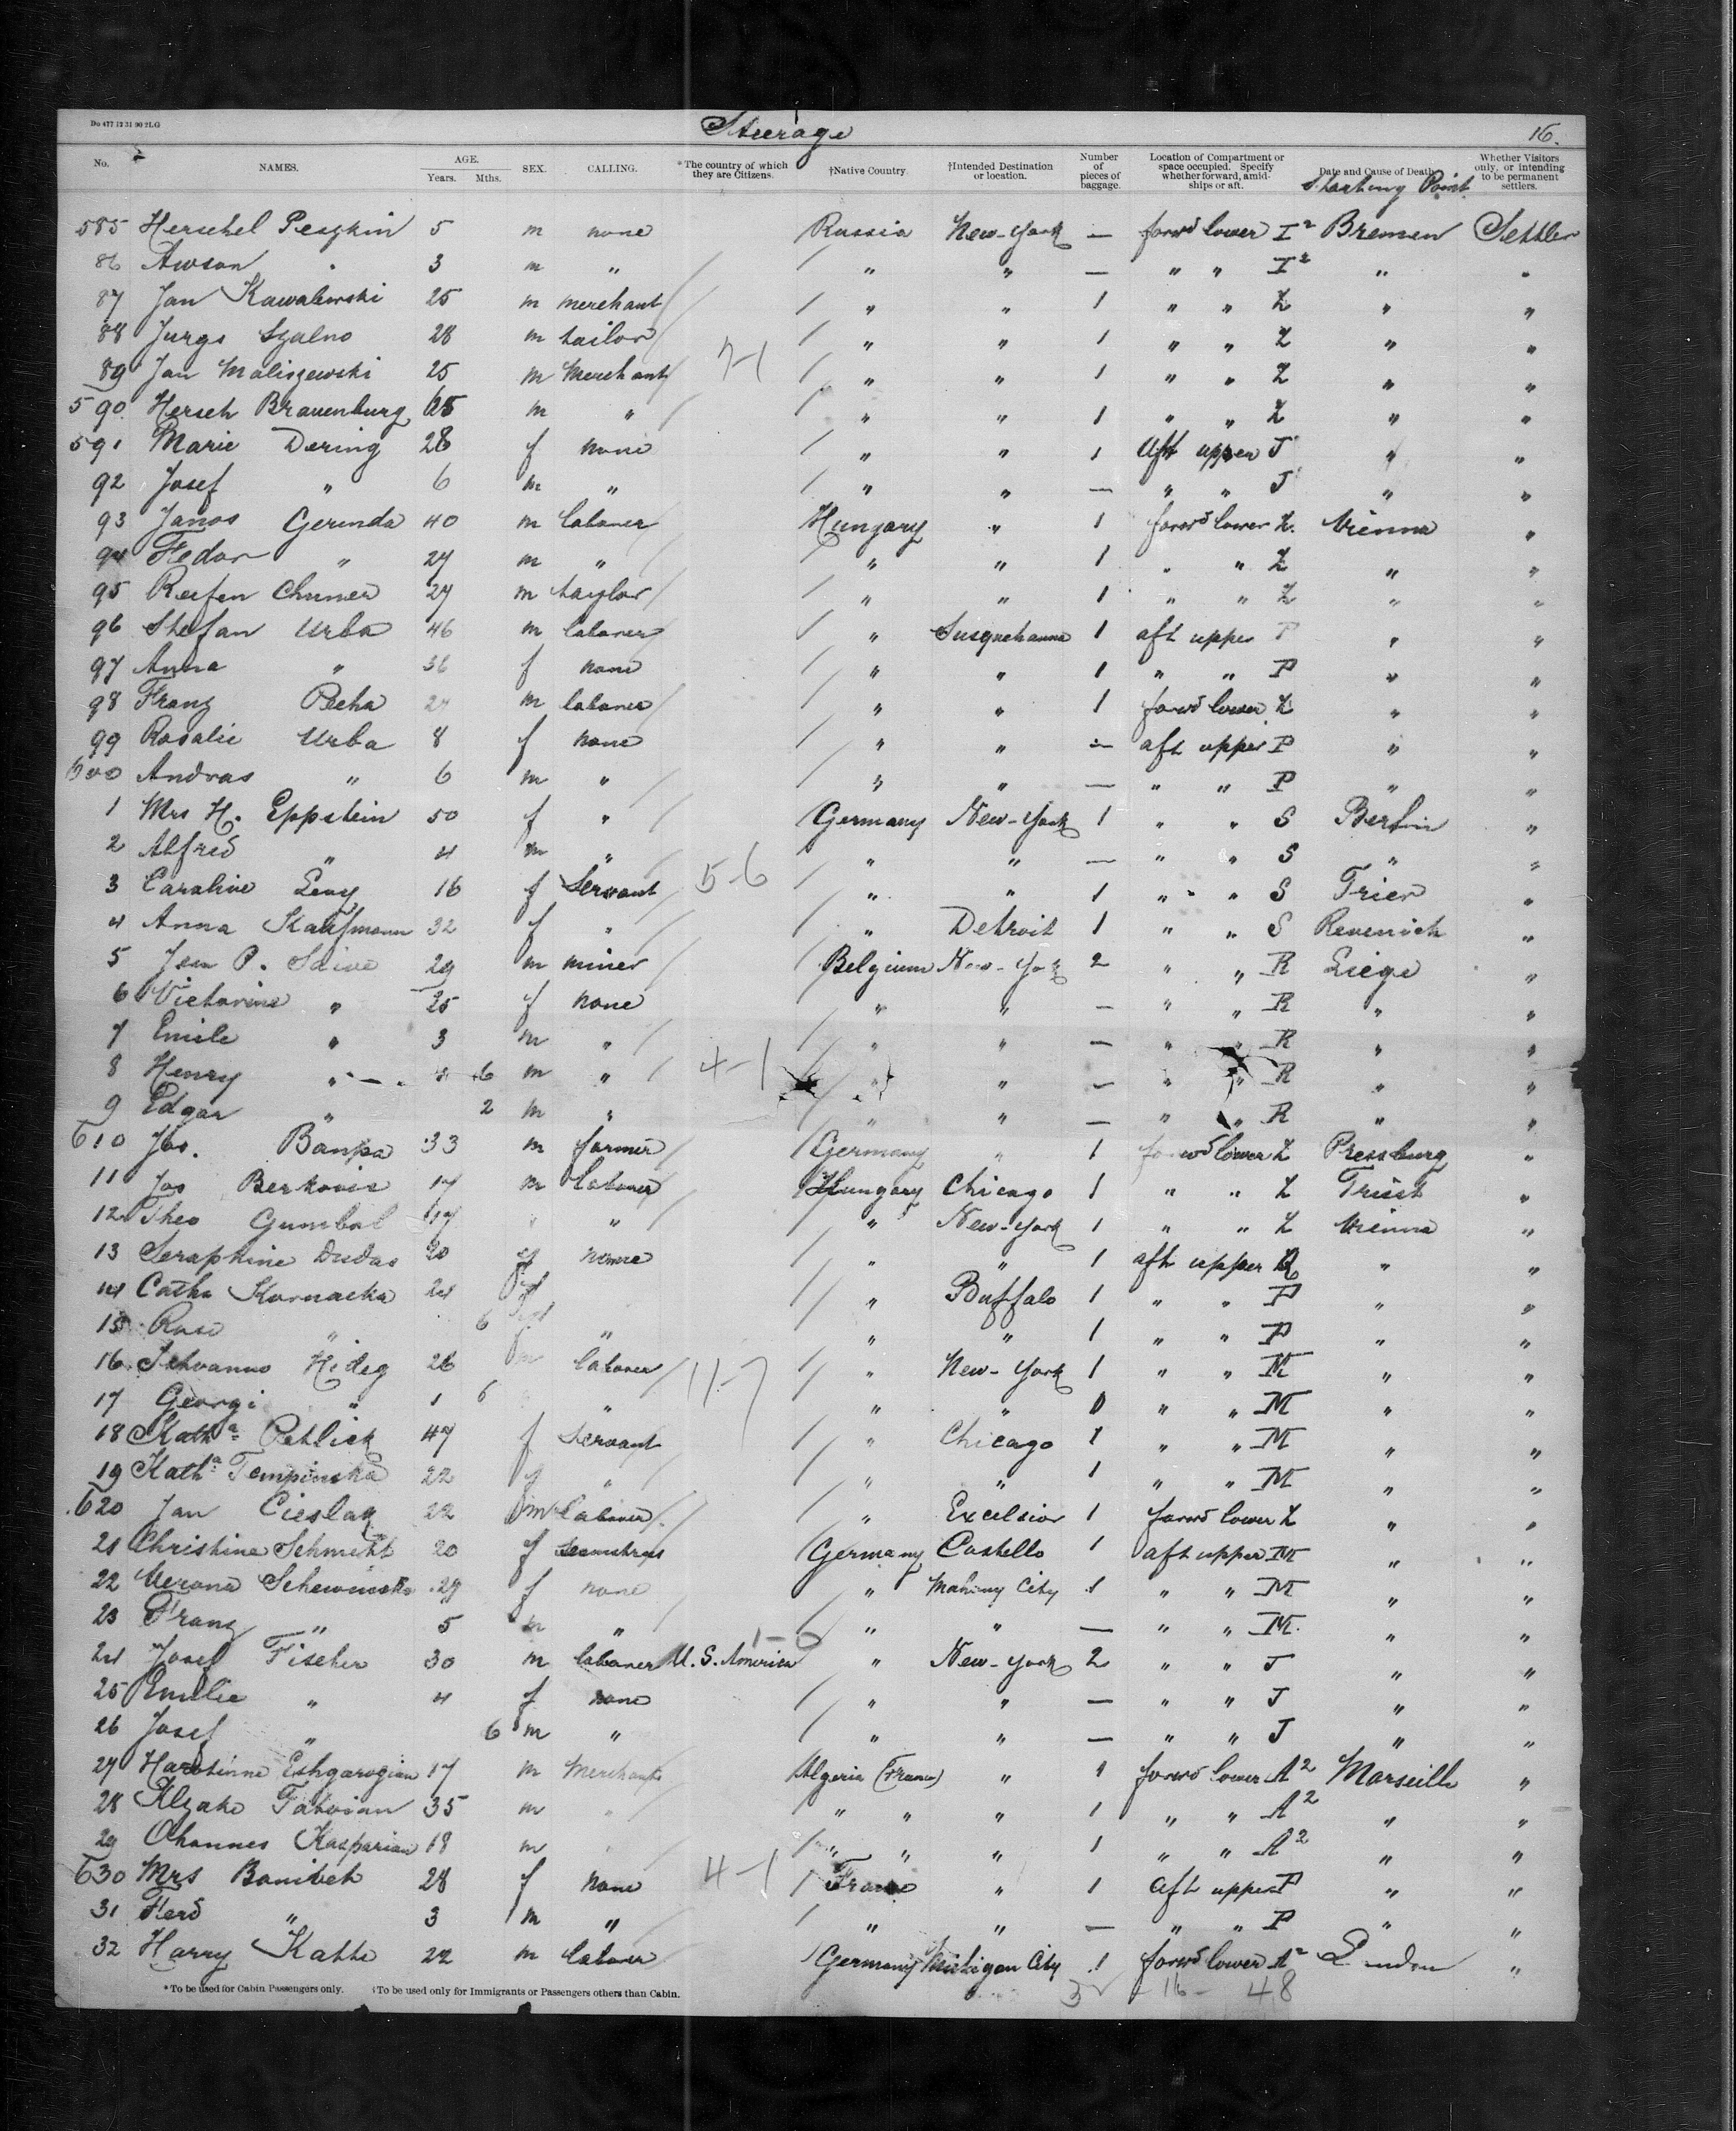 Do 477 12 31 90 2LG
Steerage 16.
No. NAMES. AGE. Years. Mths. SEX. CALLING. *The country of which they are Citizens. †Native Country. †Intended Destination or location. Number of pieces of baggage. Location of Compartment or space occupied. Specify whether forward, amidships or aft. Date and Cause of Death. Whether Visitors only, or intending to be permanent settlers.
Starting Point.
585 Herschel Peszkin 5 m none Russia New-York — forwd lower I² Bremen Settler
86 Awson " 3 m " " " — " " I² " "
87 Jan Kawalewski 25 m merchant " " 1 " " Z " "
88 Jurgs Szalno 28 m tailor " " 1 " " Z " "
89 Jan Maliszewski 25 m Merchant 7-1 " " 1 " " Z " "
590 Hersch Brauenburg 65 m " " " 1 " " Z " "
591 Marie Dering 28 f none " " 1 Aft upper J " "
92 Josef " 6 m " " " — " " J " "
93 Janos Gerenda 40 m laborer Hungary " 1 forwd lower Z. Vienna "
94 Fedor " 27 m " " " 1 " " Z " "
95 Reifen Chrmer 27 m taylor " " 1 " " Z " "
96 Stefan Urba 46 m laborer " Susquehanna 1 aft upper P " "
97 Anna " 36 f none " " 1 " " P " "
98 Franz Pecha 24 m laborer " " 1 forwd lower Z " "
99 Rosalie Urba 8 f none " " — aft upper P " "
600 Andras " 6 m " " " — " " P " "
1 Mrs H. Eppstein 50 f " Germany New-York 1 " " S Berlin "
2 Alfred " 4 m " " " — " " S " "
3 Caroline Levy 16 f Servant 5-6 " " 1 " " S Trier "
4 Anna Kaufmann 32 f " " Detroit 1 " " S Revenich "
5 Jean P. Saive 29 m miner Belgium New-York 2 " " R Liege "
6 Victorine " 25 f none " " — " " R " "
7 Emile " 3 m " " " — " " R " "
8 Henry " 6 m " 4-1 " " — " " R " "
9 Edgar " 2 m " " " — " " R " "
610 Jos. Banpa 33 m farmer Germany " 1 forwd lower Z Pressburg "
11 Jos Berkovic 17 m laborer Hungary Chicago 1 " " Z Triest "
12 Theo Gumbal 17 " " New-York 1 " " Z Vienna "
13 Seraphine Dudas 20 f none " " 1 aft upper R " "
14 Cathe Kornacka 24 f " Buffalo 1 " " P " "
15 Rose " 6 " " " 1 " " P " "
16 Hideg 26 m laborer " New-York 1 " " M " "
17 Georgi " 1 6 " 11-7 " " 0 " " M " "
18 Katha Petlick 47 f Servant " Chicago 1 " " M " "
19 Katha Tempinska 22 f " " " 1 " " M " "
620 Jan Cieslak 22 m laborer " Excelsior 1 forwd lower Z " "
21 Christine Schmitt 20 f seamstress Germany Costello 1 aft upper M " "
22 Verona Schewinska 29 f none " Mahony City 1 " " M " "
23 Franz " 5 m " 1-0 " " — " " M. " "
24 Josef Fischer 30 m laborer U.S. America " New-York 2 " " J " "
25 Emilie " 4 f none " " — " " J " "
26 Josef " 6 m " " " — " " J " "
27 Harotinne Eshgarogian 17 m Merchant Algeria (France) " 1 forwd lower A² Marseille "
28 Kegake Tatvian 35 m " " " " 1 " " A² " "
29 Ohannes Kasparian 18 m " " " 1 " " A² " "
630 Mrs Bonivek 28 f none 4-1 France " 1 aft upper P " "
31 Ferd " 3 m " " " — " " P " "
32 Harry Katte 22 m laborer Germany Michigan City 1 forwd lower A² London "
*To be used for Cabin Passengers only. †To be used only for Immigrants or Passengers others than Cabin.
32 16- 48